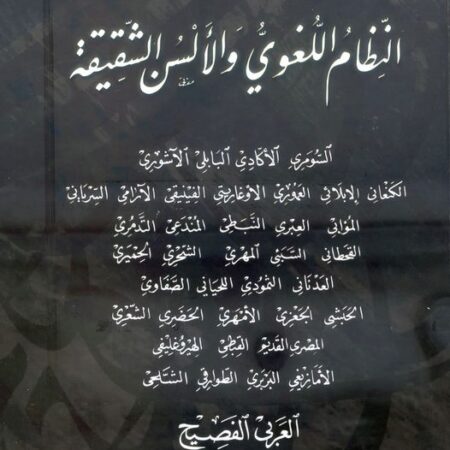 النِّظامُ اللُّغويُّ وَالأَلسُن الشَّقِيقة
السّومري الأكادي البابلي الآشوري
الكنعاني الإبلائي العموري الأوغاريتي الفينيقي الآرامي السرياني
المؤابي العبري النبطي المندعي التدمري
القحطاني السبئي المهري الشحري الحميري
العدناني الثمودي اللحياني الصفاوي
الحبشي الجعزي الأمهري الحضري الشعري
المصري القديم القبطي الهيروغليفي
الأمازيغي البربري الطوارقي الشلحي
العربي الفصيح